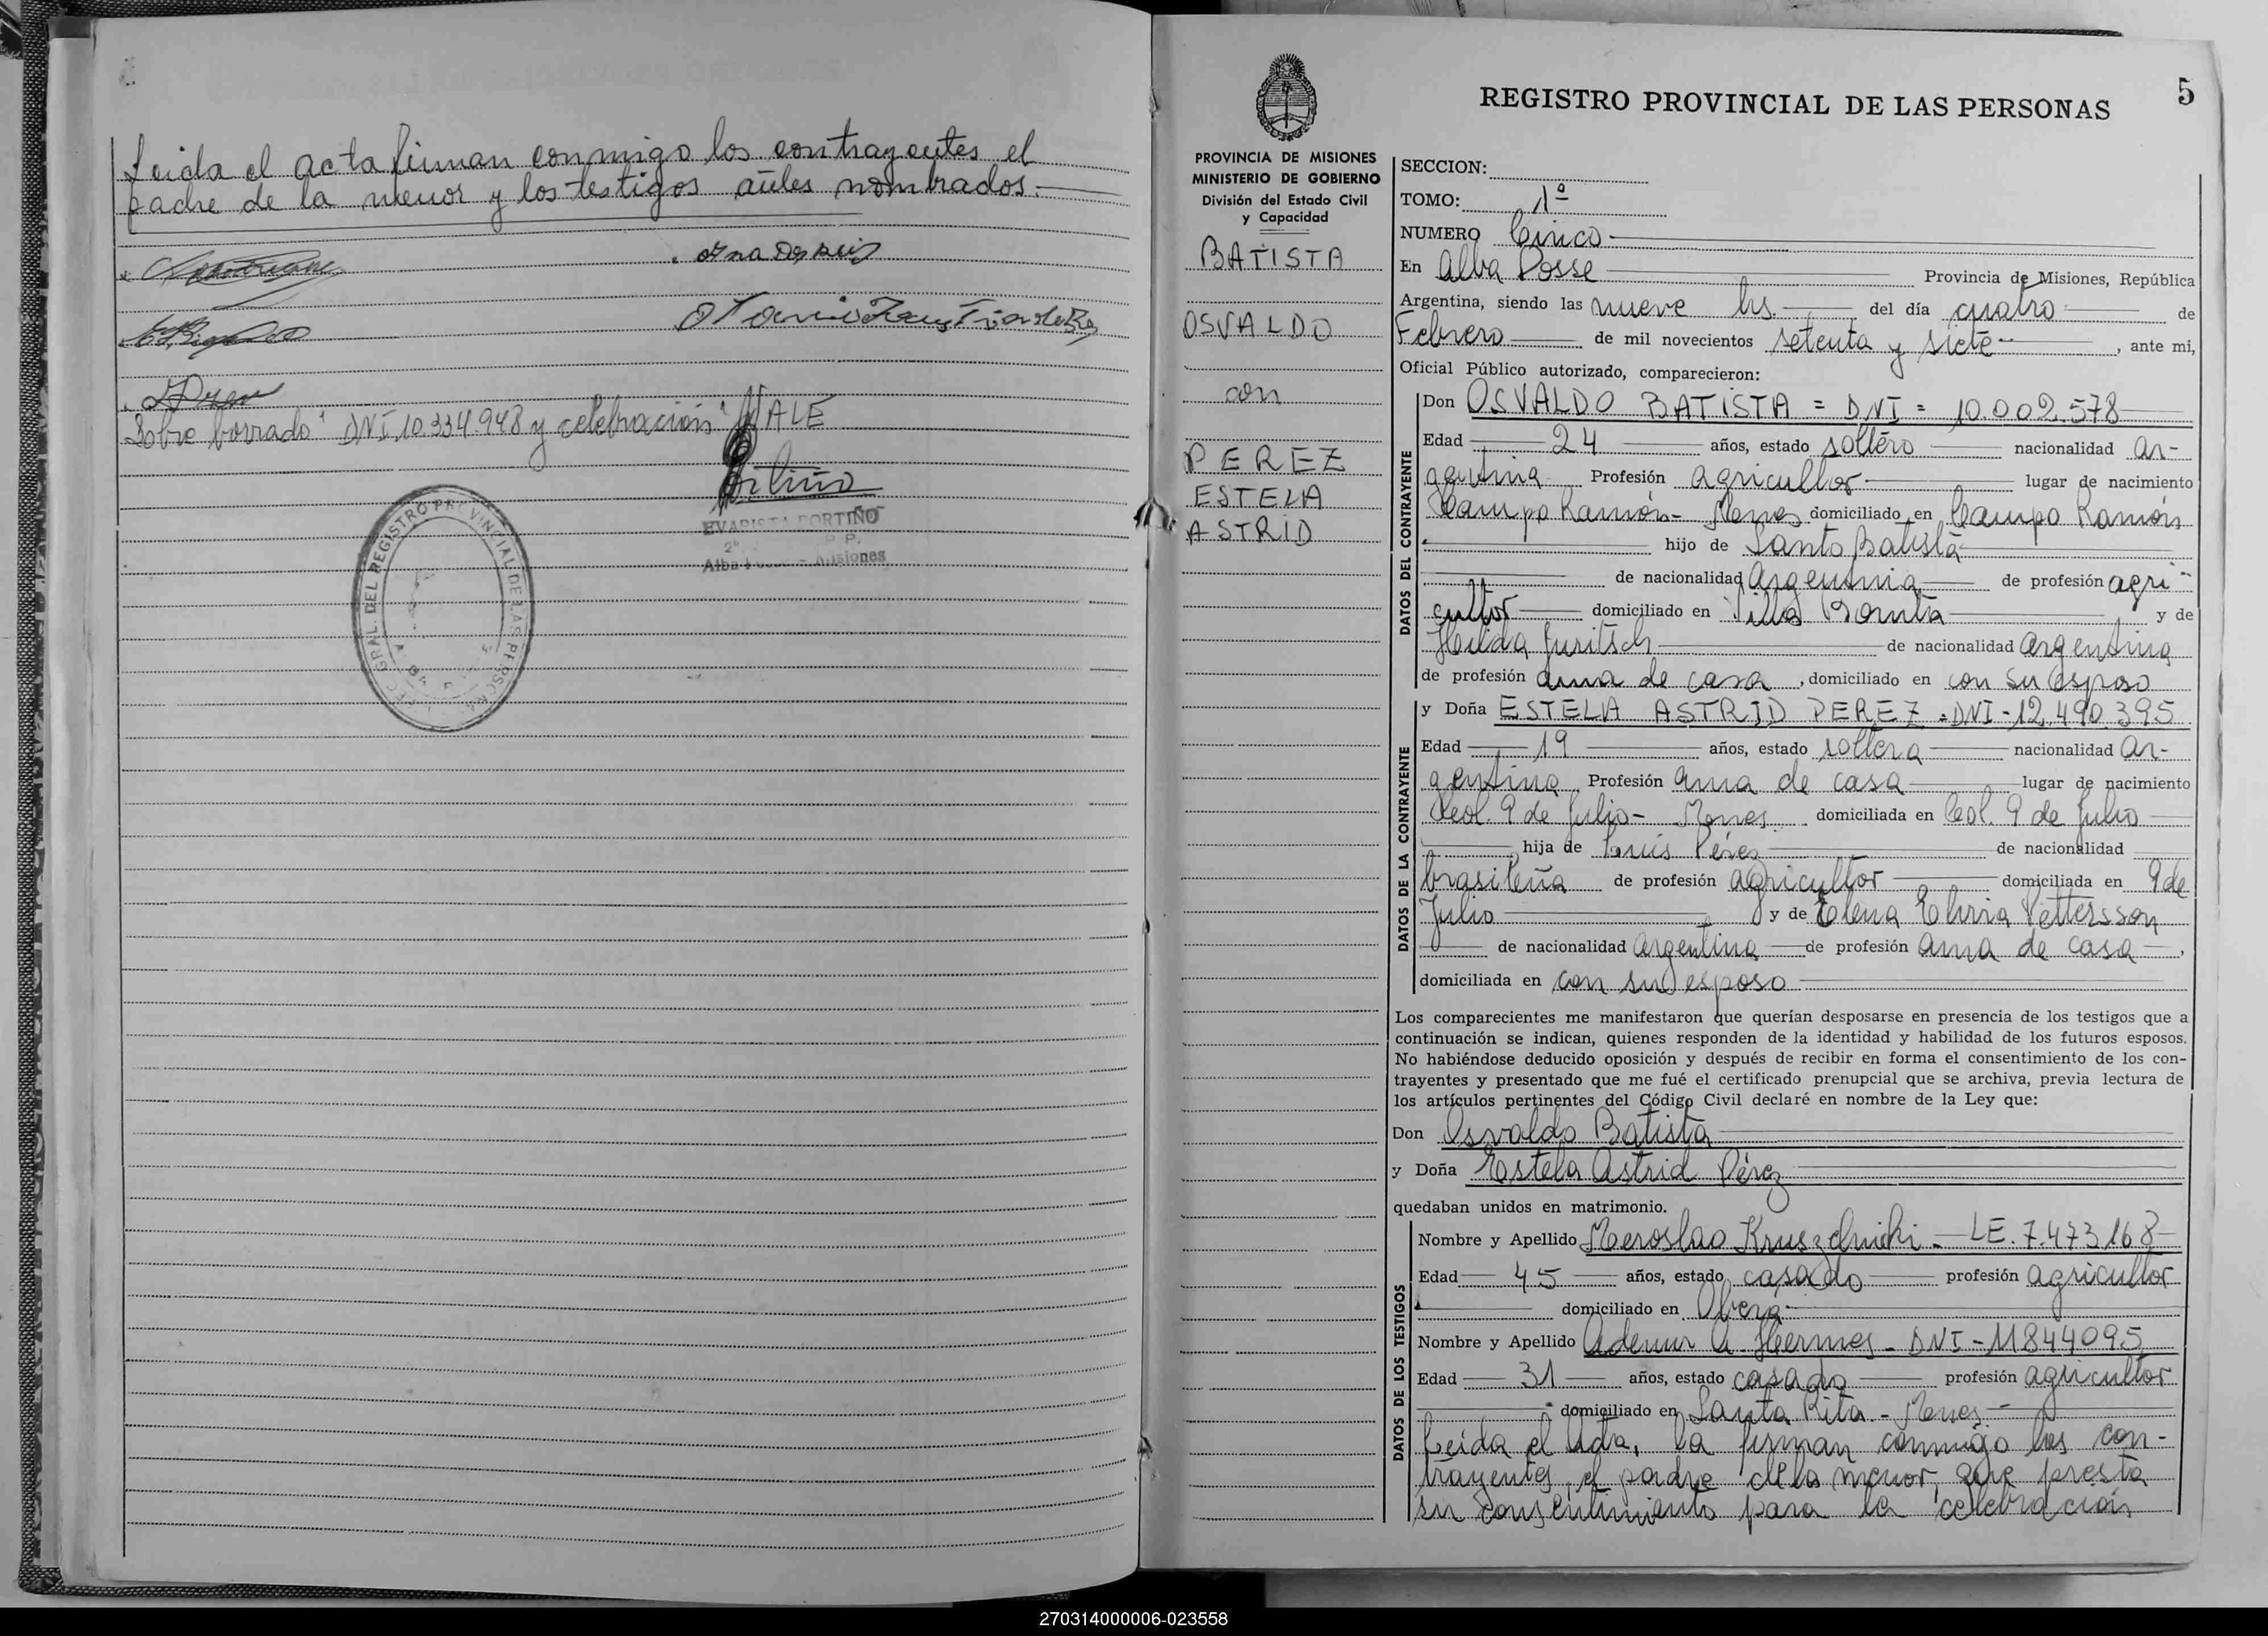 Leida el acta firman conmigo los contrayentes el
padre de la menor y los testigos antes nombrados.
Sobre borrado "DNI 10.334.948 y celebración" VALE
EVARISTA PORTIÑO
Alba Posse - Misiones
DEL REGISTRO PROVINCIAL DE LAS PERSONAS
5
REGISTRO PROVINCIAL DE LAS PERSONAS
PROVINCIA DE MISIONES
MINISTERIO DE GOBIERNO
División del Estado Civil
y Capacidad
BATISTA
OSVALDO
con
PEREZ
ESTELA
ASTRID
SECCION:
TOMO: 1º
NUMERO Cinco
En Alba Posse Provincia de Misiones, República
Argentina, siendo las nueve hs. del día cuatro de
Febrero de mil novecientos setenta y siete, ante mi,
Oficial Público autorizado, comparecieron:
DATOS DEL CONTRAYENTE
Don OSVALDO BATISTA = DNI = 10.002.578
Edad 24 años, estado soltero nacionalidad ar-
gentina Profesión agricultor lugar de nacimiento
Campo Ramón - Mnes domiciliado en Campo Ramón
hijo de Santo Batista
de nacionalidad Argentina de profesión agri-
cultor domiciliado en Villa Bonita y de
Hilda Juritsch de nacionalidad argentina
de profesión ama de casa, domiciliado en con su esposo
DATOS DE LA CONTRAYENTE
y Doña ESTELA ASTRID PEREZ = DNI - 12.490.395
Edad 19 años, estado soltera nacionalidad ar-
gentina Profesión ama de casa lugar de nacimiento
Col. 9 de Julio - Mnes domiciliada en Col. 9 de Julio
hija de Luis Pérez de nacionalidad
brasileña de profesión agricultor domiciliada en 9 de
Julio y de Elena Elvira Pettersson
de nacionalidad argentina de profesión ama de casa,
domiciliada en con su esposo
Los comparecientes me manifestaron que querían desposarse en presencia de los testigos que a
continuación se indican, quienes responden de la identidad y habilidad de los futuros esposos.
No habiéndose deducido oposición y después de recibir en forma el consentimiento de los con-
trayentes y presentado que me fué el certificado prenupcial que se archiva, previa lectura de
los artículos pertinentes del Código Civil declaré en nombre de la Ley que:
Don Osvaldo Batista
y Doña Estela Astrid Pérez
quedaban unidos en matrimonio.
DATOS DE LOS TESTIGOS
Nombre y Apellido Meroslao Kruszelnicki - LE. 7.473.168
Edad 45 años, estado casado profesión agricultor
domiciliado en Oberá
Nombre y Apellido Ademir A. Hermes - DNI - 11844095
Edad 31 años, estado casado profesión agricultor
domiciliado en Santa Rita - Mnes.
Leida el Acta, la firman conmigo los con-
trayentes, el padre de la menor, que presta
su consentimiento para la celebración
270314000006-023558